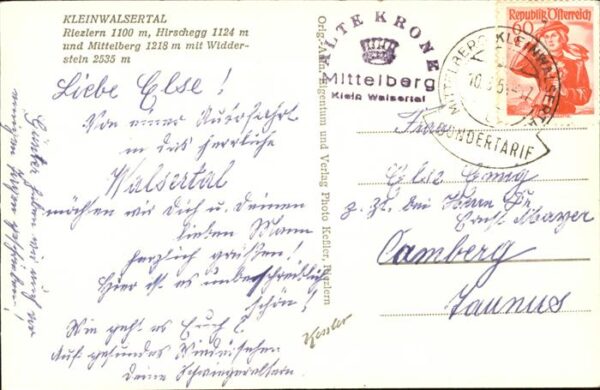 KLEINWALSERTAL
Riezlern 1100 m, Hirschegg 1124 m
und Mittelberg 1218 m mit Widder-
stein 2535 m
Liebe Else!
Von einer Autofahrt
in das herrliche
Walsertal
möchten wir Dich u. Deinen
lieben Mann
herzlich grüßen!
Hier ist es unbeschreiblich
schön!
Wie geht es Euch?
Auf gesundes Wiedersehen
Deine Schwiegereltern.
Günter haben wir auch vor
einigen Tagen geschrieben!
Orig.-Aufn. Eigentum und Verlag Photo Keßler, Riezlern
Kessler
ALTE KRONE
Mittelberg
Klein Walsertal
MITTELBERG KLEINWALSERTAL
SONDERTARIF
Republik Österreich
60
Frau
Else Emig
z. Zt. bei Herrn Dr.
Ernst Mayer
Camberg
Taunus